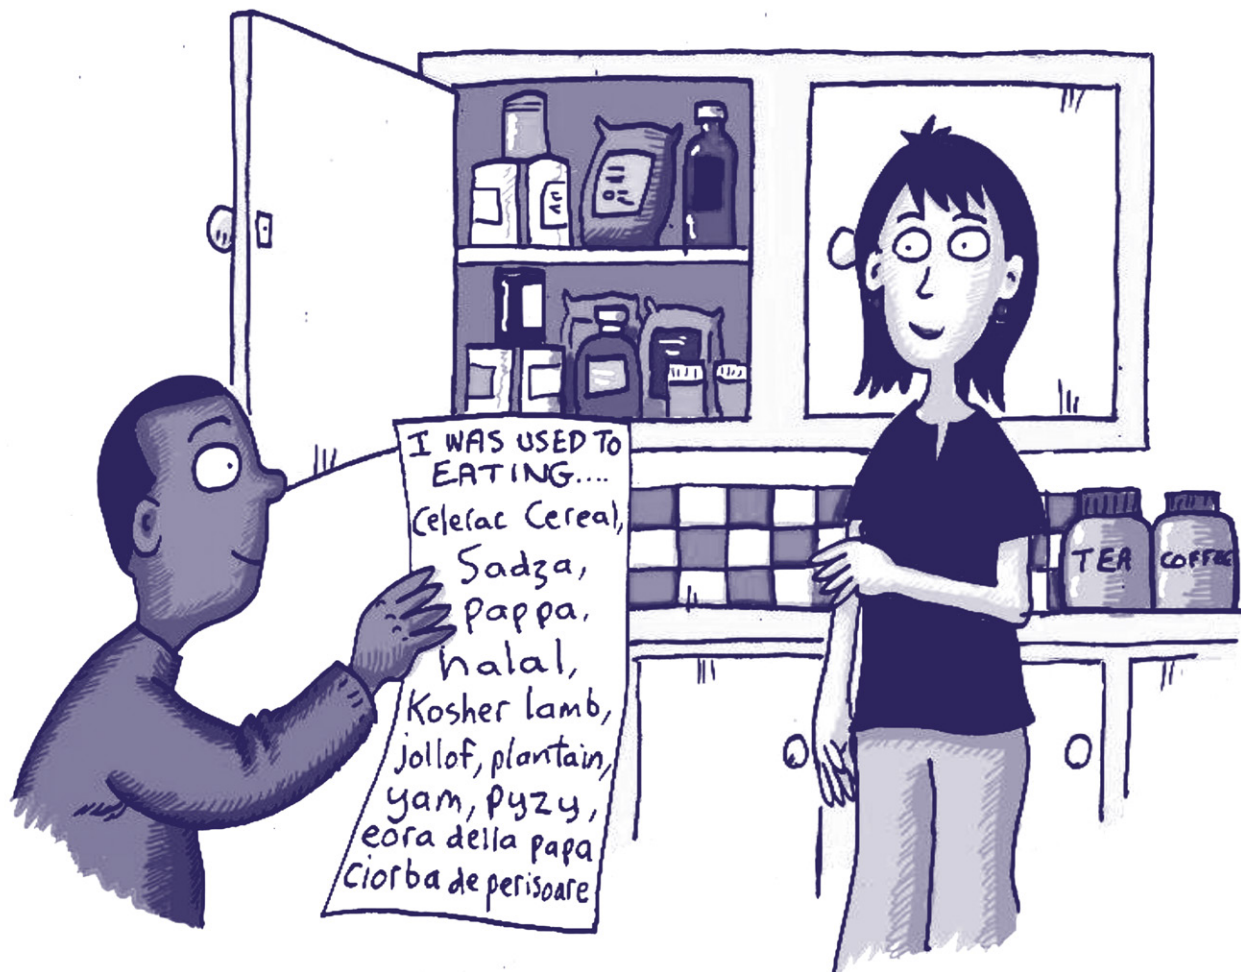 I WAS USED TO
EATING....
Celerac Cereal,
Sadza,
pappa,
halal,
Kosher lamb,
jollof, plantain,
yam, pyzy,
eora della papa
Ciorba de perisoare
TEA
COFFEE